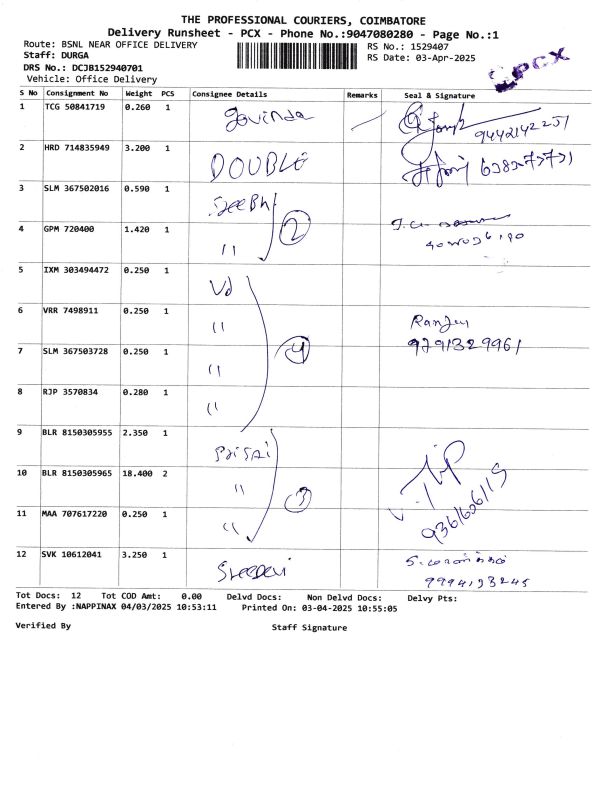 THE PROFESSIONAL COURIERS, COIMBATORE
Delivery Runsheet - PCX - Phone No.:9047080280 - Page No.:1
Route: BSNL NEAR OFFICE DELIVERY
RS No.: 1529407
Staff: DURGA
RS Date: 03-Apr-2025
DRS No.: DCJB152940701
Vehicle: Office Delivery
PCX
S No Consignment No Weight PCS Consignee Details Remarks Seal & Signature
1 TCG 50841719 0.260 1 Govinda 9442142251
2 HRD 714835949 3.200 1 DOUBLE
3 SLM 367502016 0.590 1
4 GPM 720400 1.420 1 " 2
5 IXM 303494472 0.250 1 Vd
6 VRR 7498911 0.250 1 " Ranjen
7 SLM 367503728 0.250 1 " 4 9791329961
8 RJP 3570834 0.280 1 "
9 BLR 8150305955 2.350 1
10 BLR 8150305965 18.400 2 " 3
11 MAA 707617220 0.250 1 "
12 SVK 10612041 3.250 1 Sreedevi
Tot Docs: 12 Tot COD Amt: 0.00 Delvd Docs: Non Delvd Docs: Delvy Pts:
Entered By :NAPPINAX 04/03/2025 10:53:11 Printed On: 03-04-2025 10:55:05
Verified By Staff Signature